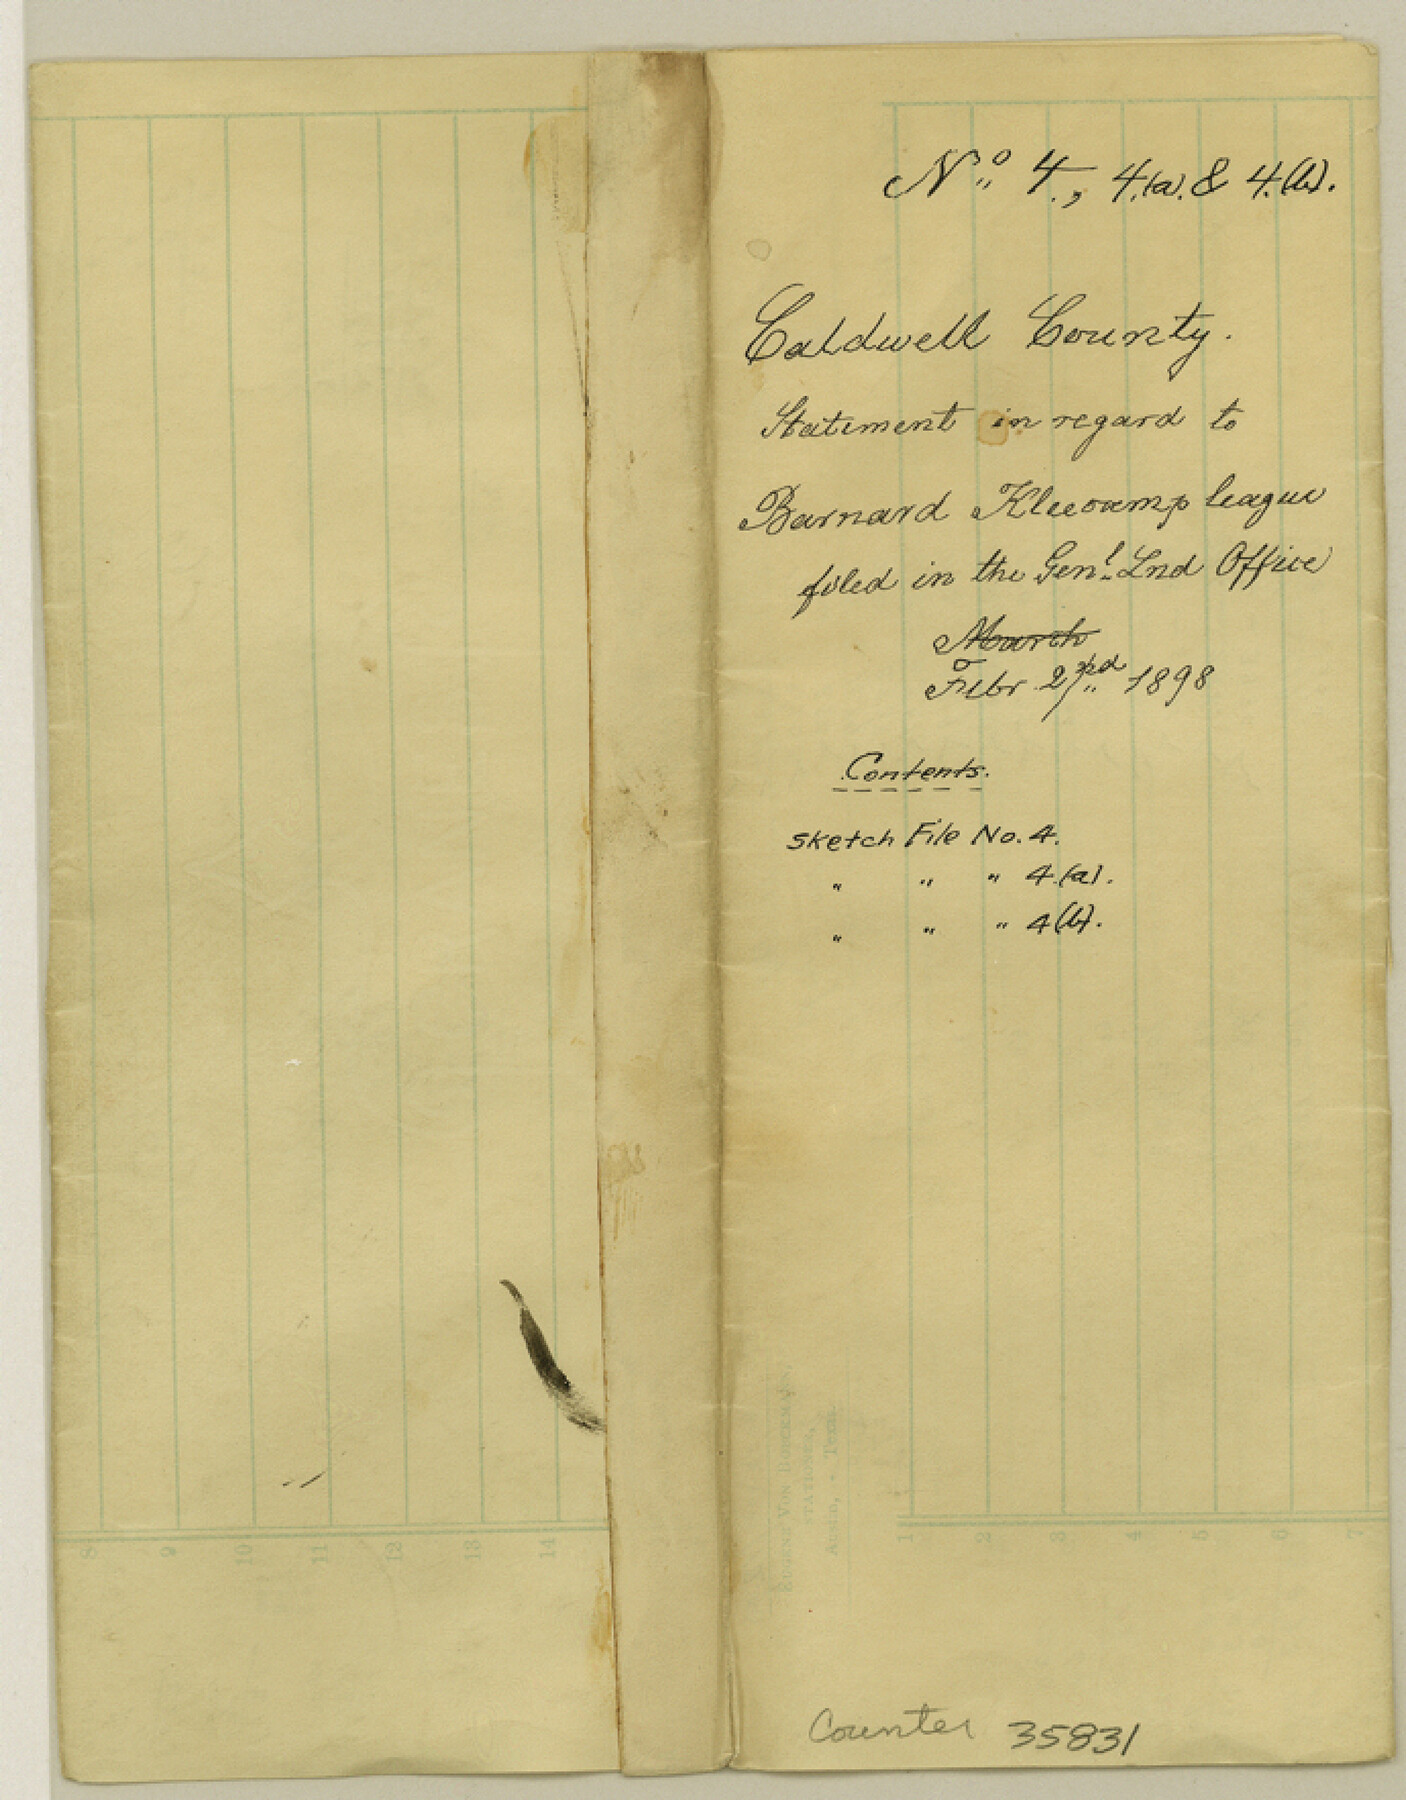 No 4, 4(a). & 4.(b).
Caldwell County.
Statement in regard to
Barnard Kleecamp league
filed in the Genl. Lnd Office
March
Febr 2nd 1898
Contents.
Sketch File No. 4.
" " " 4.(a).
" " " 4(b).
Eugene Von Boeckmann,
STATIONER,
Austin, - Texas.
1 2 3 4 5 6 7
8 9 10 11 12 13 14
Counter 35831